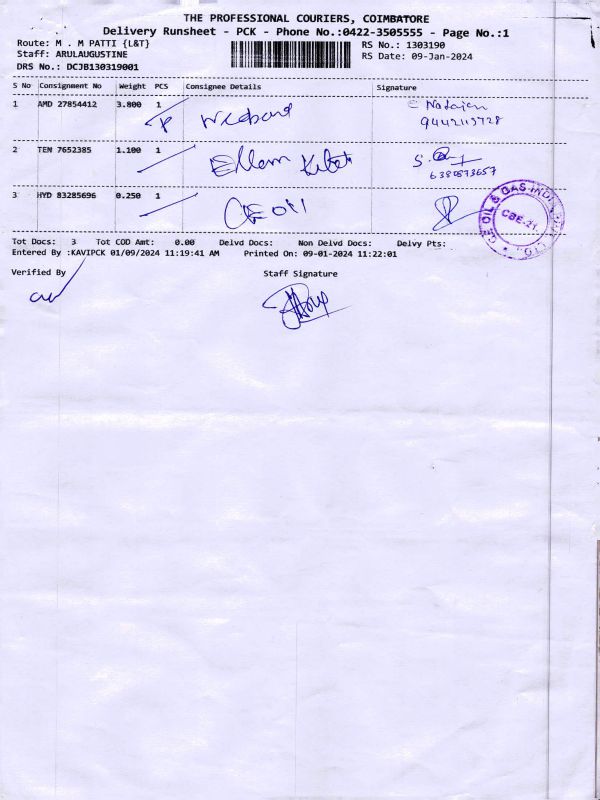 THE PROFESSIONAL COURIERS, COIMBATORE
Delivery Runsheet - PCK - Phone No.:0422-3505555 - Page No.:1
Route: M . M PATTI {L&T}
Staff: ARULAUGUSTINE
DRS No.: DCJB130319001
RS No.: 1303190
RS Date: 09-Jan-2024
S No Consignment No Weight PCS Consignee Details Signature
1 AMD 27854412 3.800 1
2 TEN 7652385 1.100 1
3 HYD 83285696 0.250 1 GE oil
GE OIL & GAS INDIA
CBE-21.
Tot Docs: 3 Tot COD Amt: 0.00 Delvd Docs: Non Delvd Docs: Delvy Pts:
Entered By :KAVIPCK 01/09/2024 11:19:41 AM Printed On: 09-01-2024 11:22:01
Verified By Staff Signature